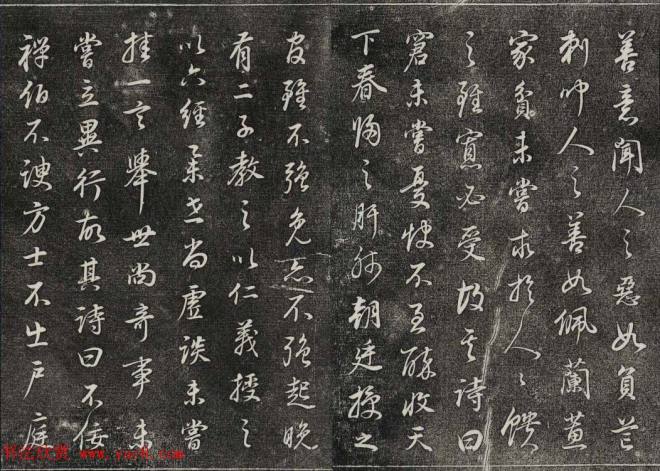 善意聞人之惡如負芒
刺聞人之善如佩蘭蕙
家貧未嘗求於人人饋
之雖寡必受故其詩曰
窘未嘗憂飲不至醉收天
下春歸之肝肺朝廷授之
官雖不強免亦不強起晚
有二子教之以仁義授之
以六經舉世尚虛談未嘗
挂一言舉世尚奇事未
嘗立異行故其詩曰不佞
禪伯不諛方士不出戶庭
书法欣赏 www.yac8.com